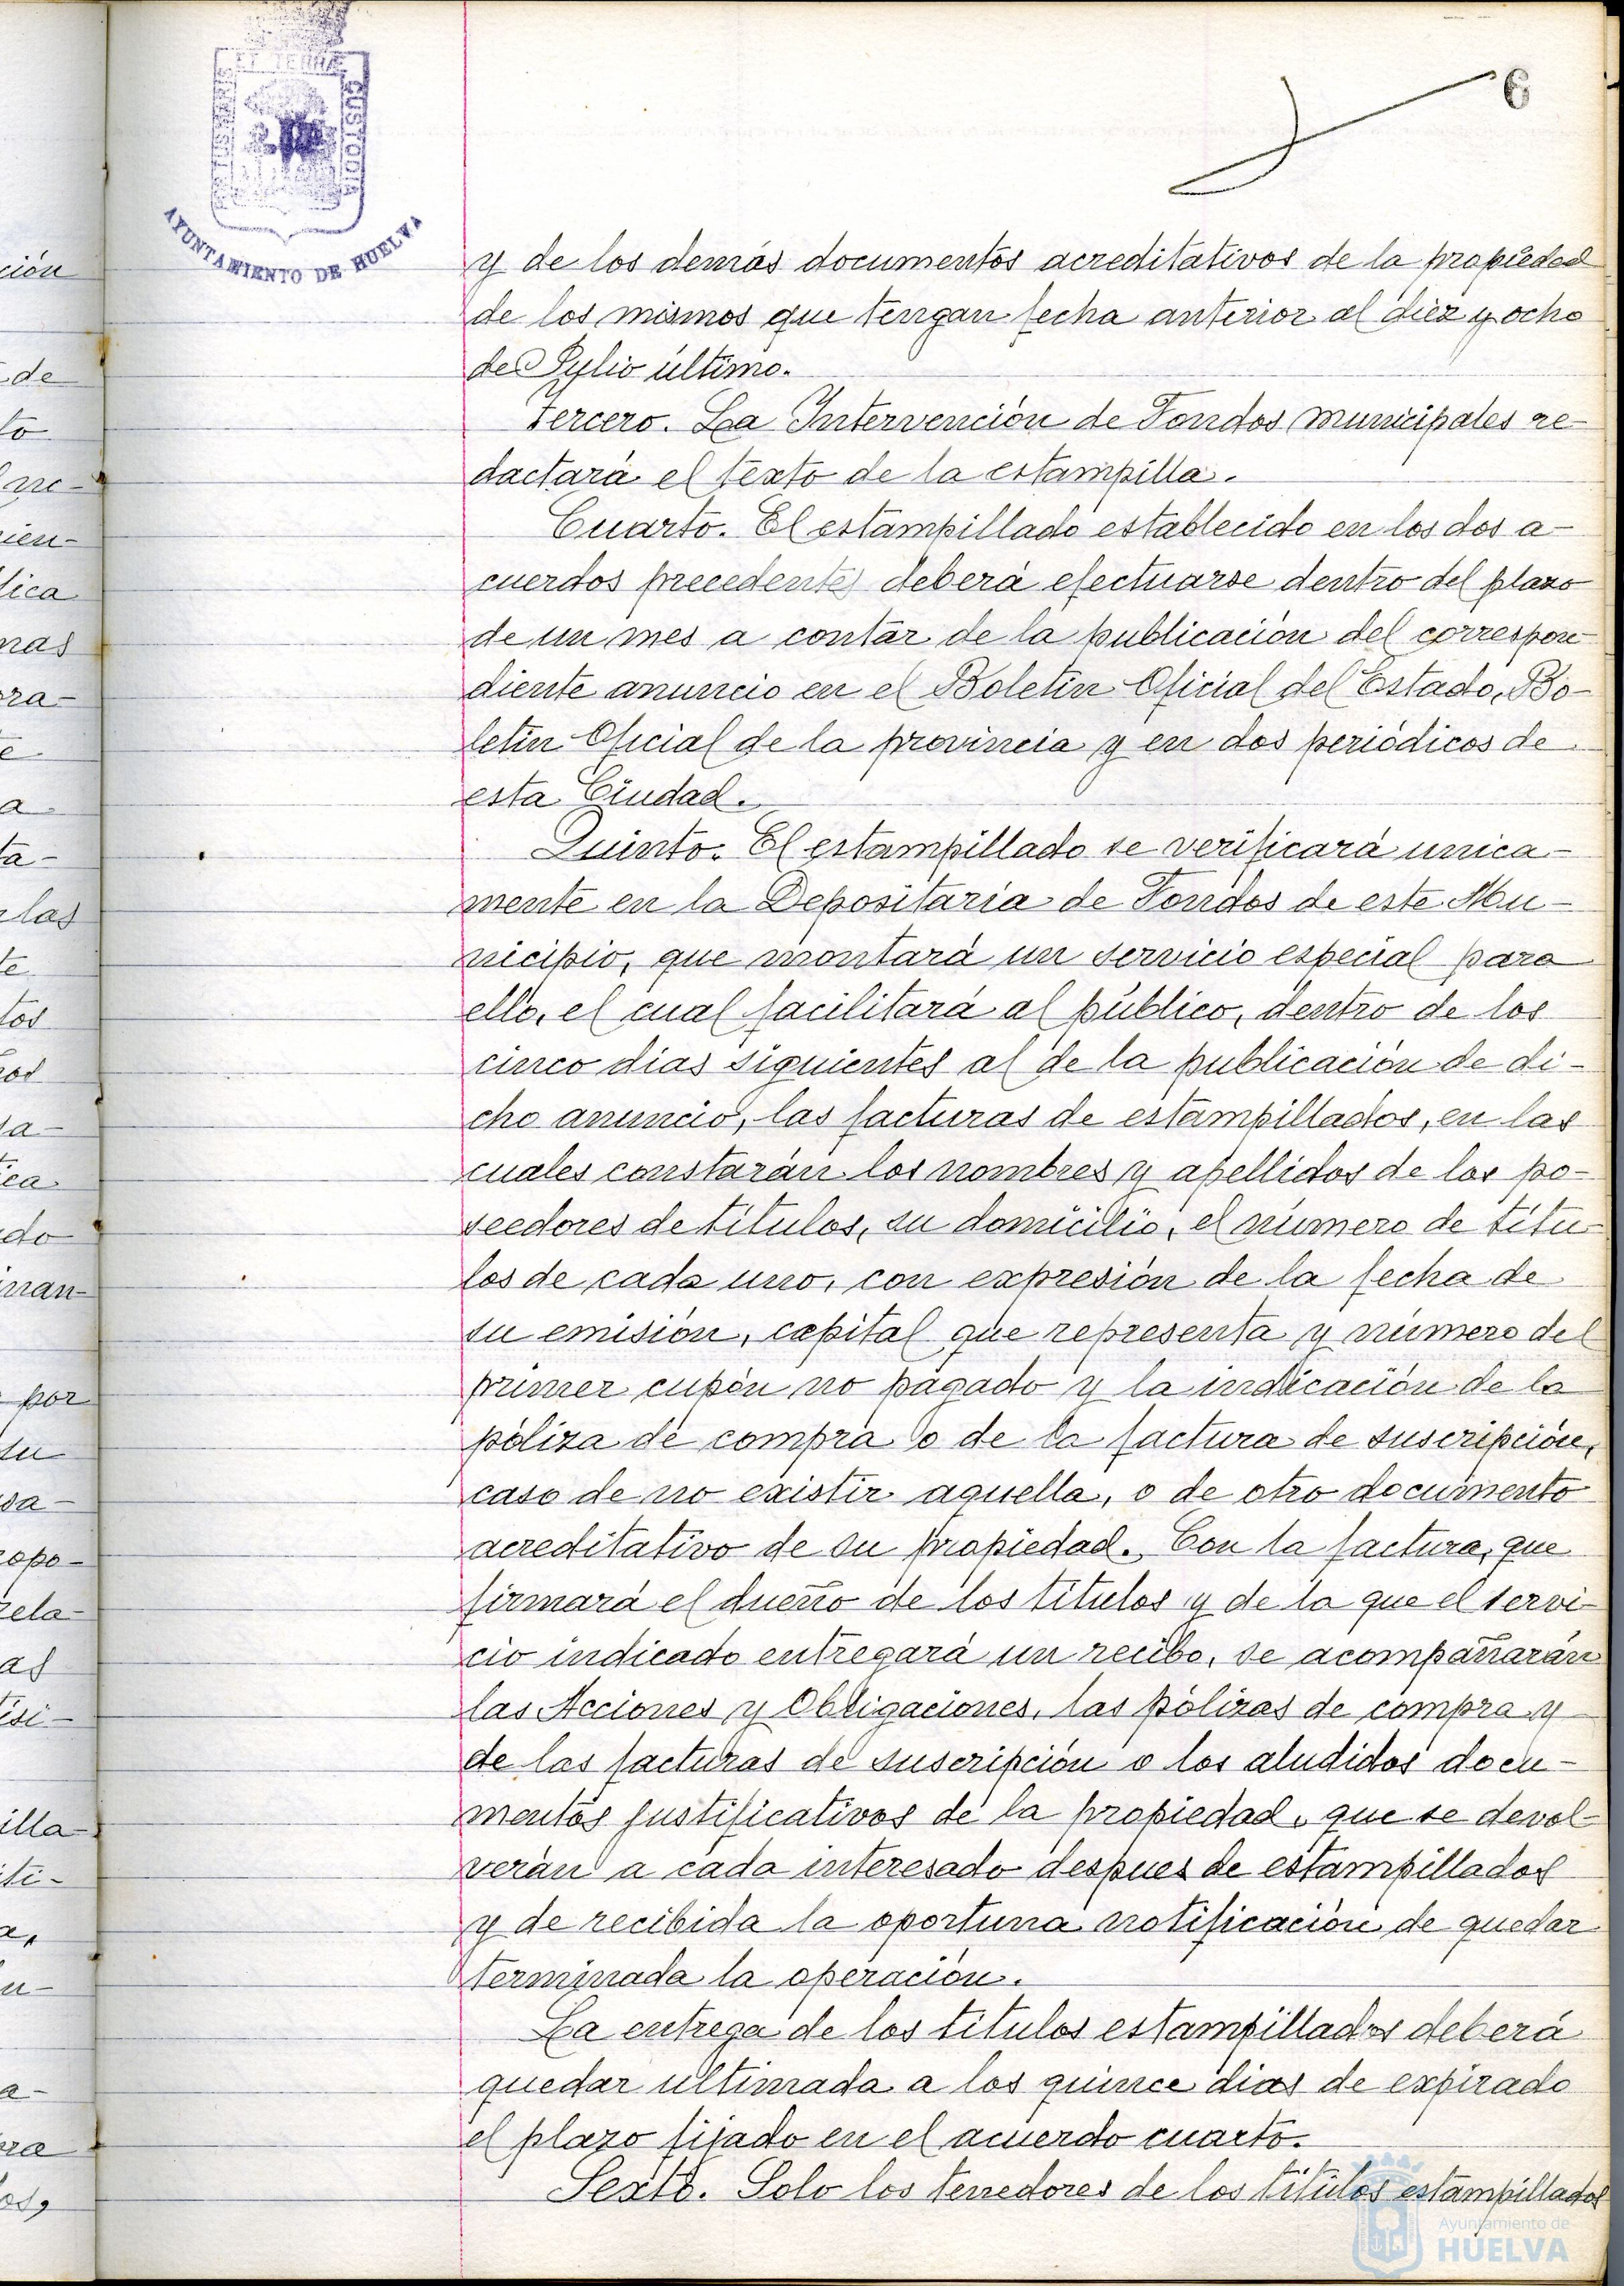 ET TERRÆ
CUSTODIA
AYUNTAMIENTO DE HUELVA
6
y de los demás documentos acreditativos de la propiedad
de los mismos que tengan fecha anterior al diez y ocho
de Julio último.
Tercero. La Intervención de Fondos municipales re-
dactará el texto de la estampilla.
Cuarto. El estampillado establecido en los dos a-
cuerdos precedentes deberá efectuarse dentro del plazo
de un mes a contar de la publicación del correspon-
diente anuncio en el Boletin Oficial del Estado, Bo-
letin Oficial de la provincia y en dos periódicos de
esta Ciudad.
Quinto. El estampillado se verificará unica-
mente en la Depositaria de Fondos de este Mu-
nicipio, que montará un servicio especial para
ello, el cual facilitará al público, dentro de los
cinco dias siguientes al de la publicación de di-
cho anuncio, las facturas de estampillados, en las
cuales constarán los nombres y apellidos de los po-
seedores de títulos, su domicilio, el número de títu-
los de cada uno, con expresión de la fecha de
su emisión, capital que representa y número del
primer cupón no pagado y la indicación de la
póliza de compra o de la factura de suscripción,
caso de no existir aquella, o de otro documento
acreditativo de su propiedad. Con la factura, que
firmará el dueño de los títulos y de la que el servi-
cio indicado entregará un recibo, se acompañarán
las Acciones y Obligaciones, las pólizas de compra y
de las facturas de suscripción o los aludidos docu-
mentos justificativos de la propiedad, que se devol-
verán a cada interesado despues de estampillados
y de recibida la oportuna notificación de quedar
terminada la operación.
La entrega de los títulos estampillados deberá
quedar ultimada a los quince dias de expirado
el plazo fijado en el acuerdo cuarto.
Sexto. Solo los tenedores de los títulos estampillados
Ayuntamiento de
HUELVA
ción
de
to
ne-
ien-
lica
mas
ra-
te
a
ta-
las
te
tos
a-
ica
do
man-
por
su
sa-
opo-
rela-
as
isi-
illa-
iti-
a,
u-
a-
ra
os,